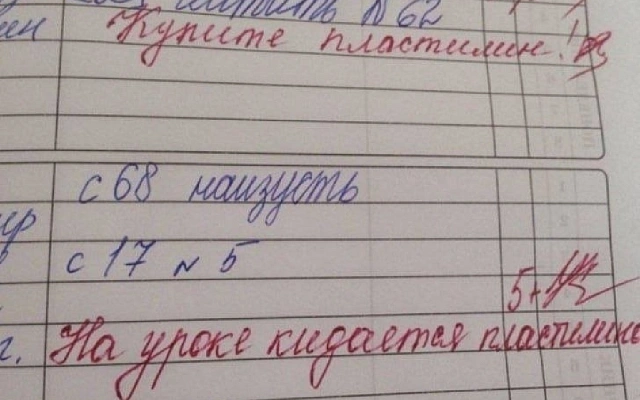 читать № 62
Купите пластилин!
с 68 наизусть
с 17 № 5
5+
На уроке кидается пластилино